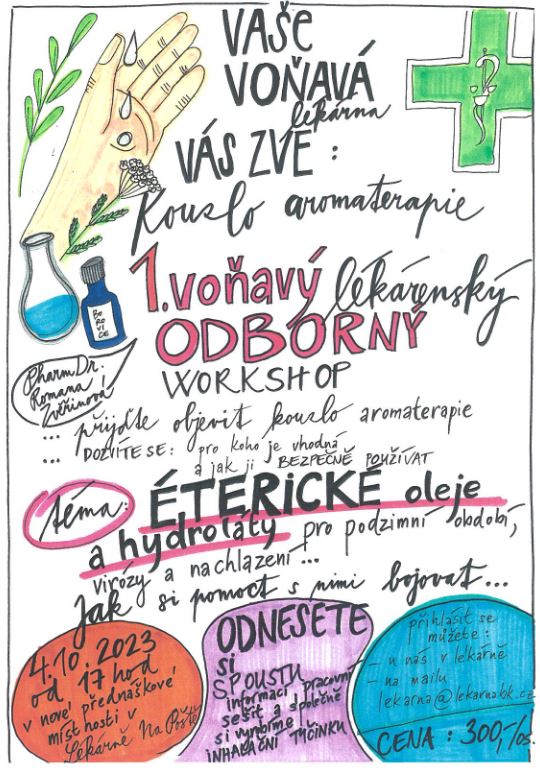 VAŠE
VOŇAVÁ
lékárna
VÁS ZVE :
Kouzlo aromaterapie
1. voňavý lékárenský
ODBORNÝ
WORKSHOP
BOROVICE
PharmDr.
Romana
Zvěřinová!
... přijďte objevit kouzlo aromaterapie
... DOZVÍTE SE: pro koho je vhodná
a jak ji BEZPEČNĚ POUŽÍVAT
téma: ÉTERICKÉ oleje
a hydroláty pro podzimní období,
virózy a nachlazení...
Jak si pomoct s nimi bojovat...
4.10.2023
od 17 hod
v nové přednáškové
místnosti v
Lékárně Na Poště
ODNESETE
si
SPOUSTU
informací, pracovní
sešit a společně
si vyrobíme
INHALAČNÍ TYČINKU
přihlásit se
můžete:
- u nás v lékárně
- na mailu
lekarna@lekarnabk.cz
CENA : 300,-/os.